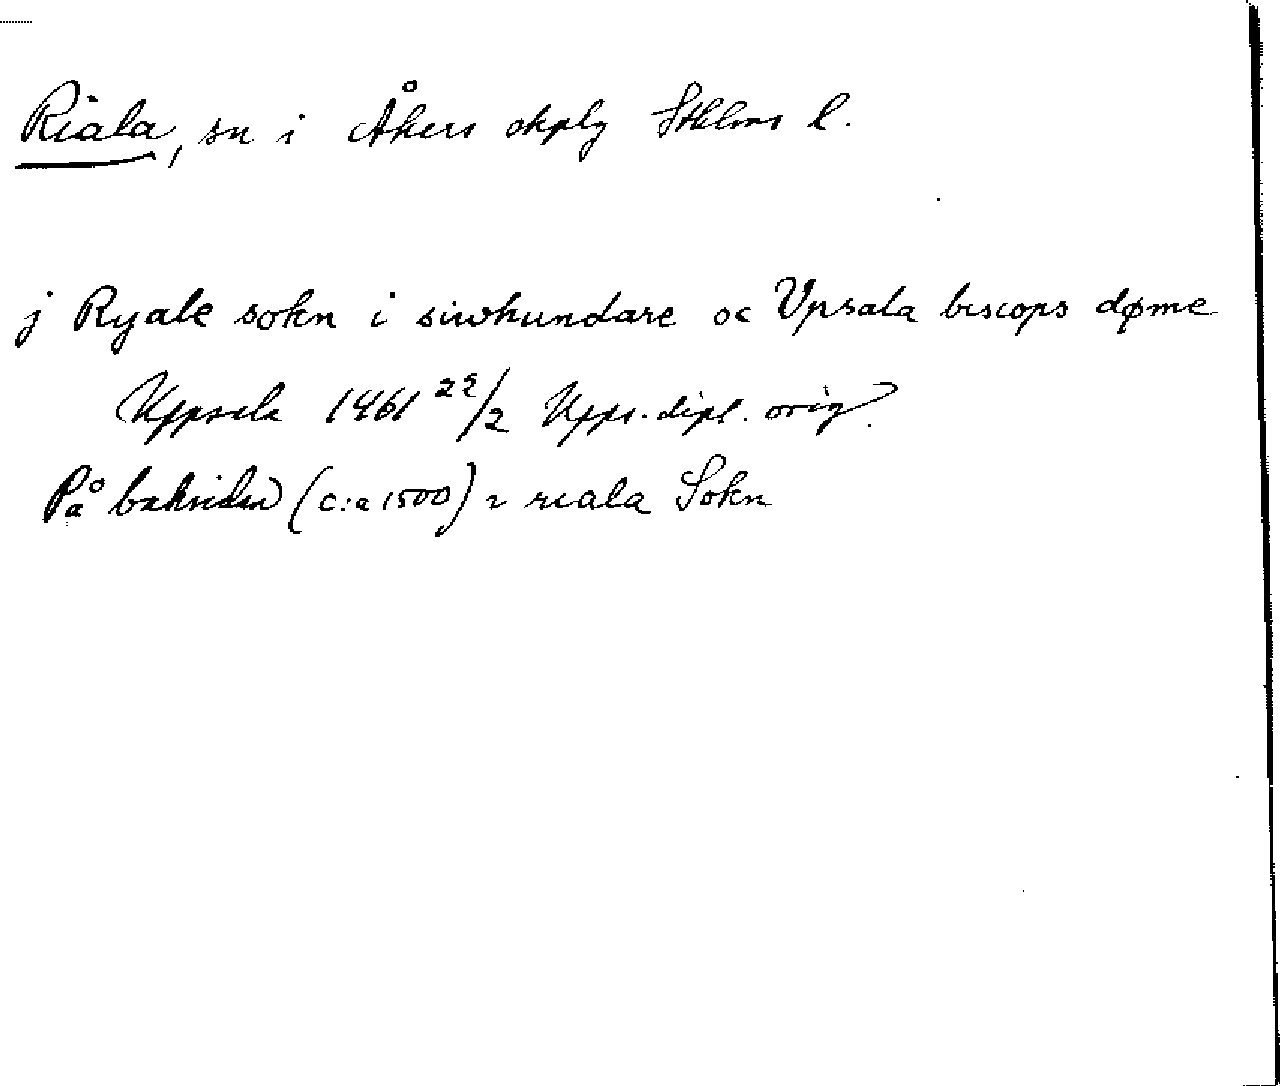 Riala, sn i Åkers skplg Sthlms l.
j Ryale sokn i siwhundare oc Vpsala biscops døme
Uppsala 1461 22/2 Upps. dipl. orig.
På baksidan (c:a 1500) i riala Sokn